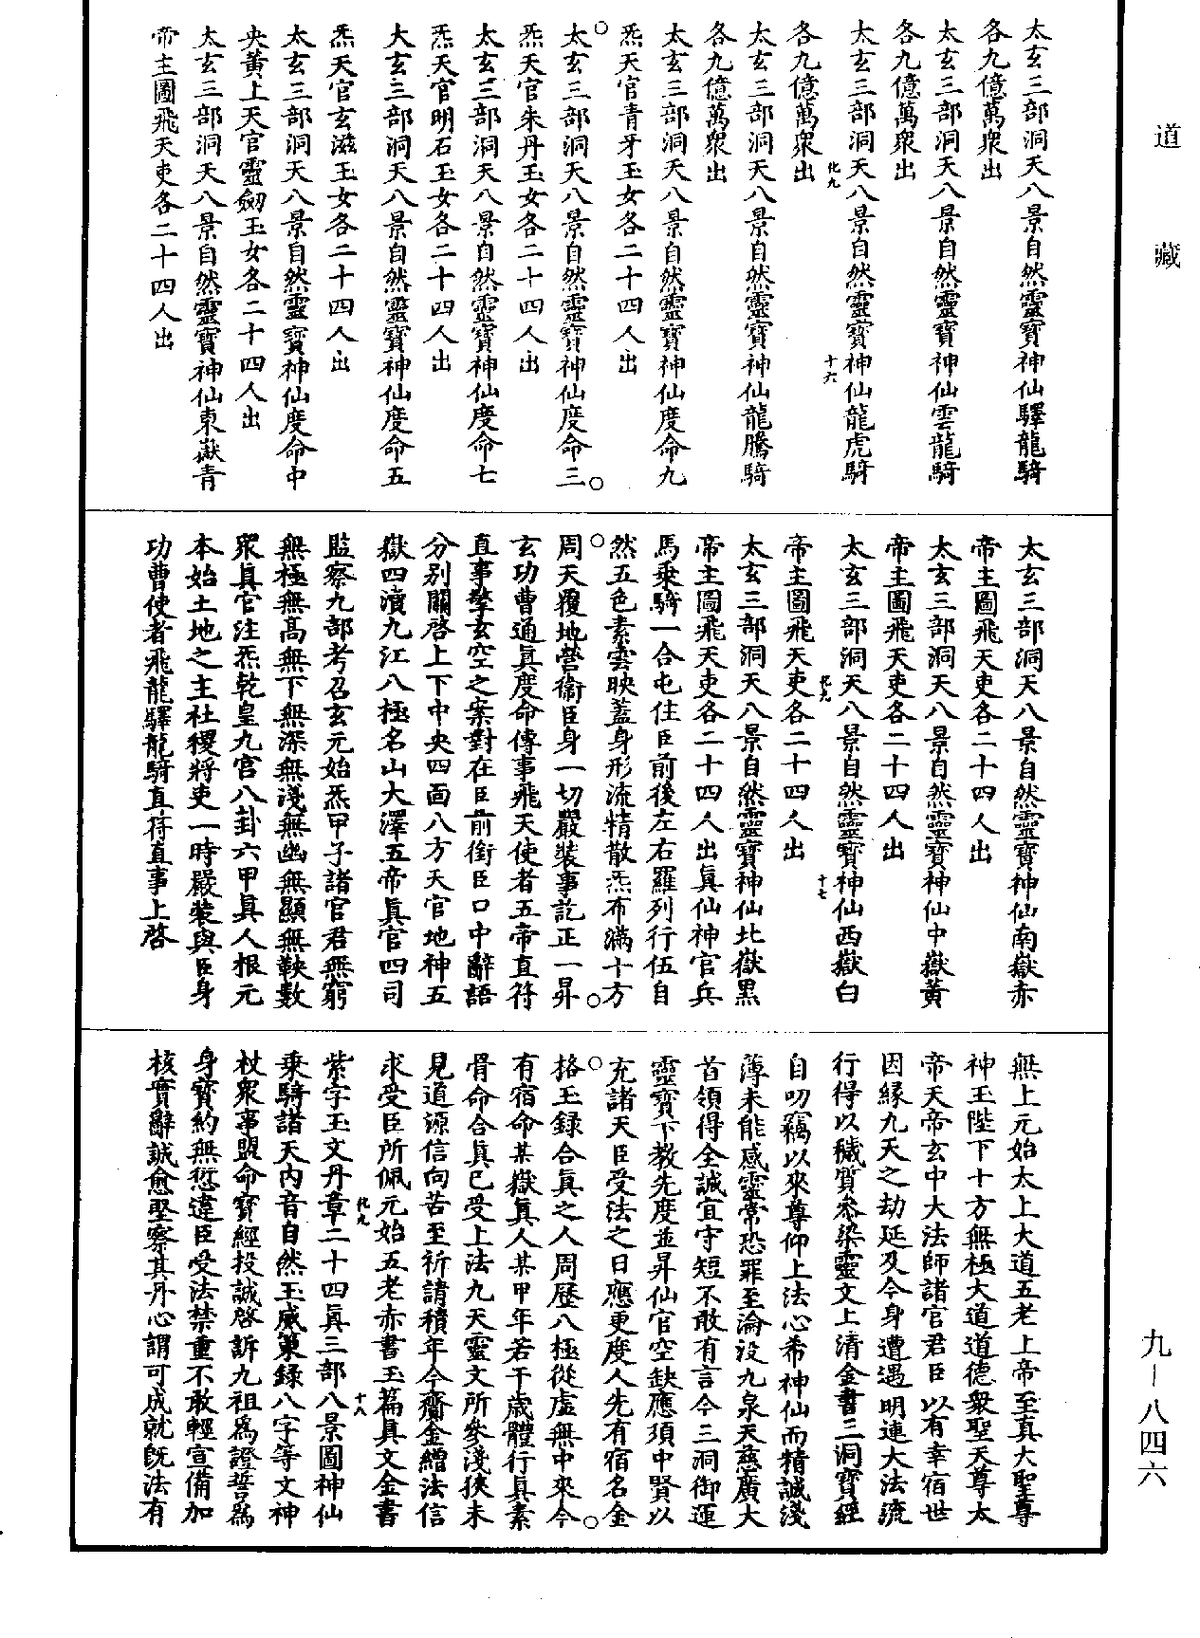 道藏
太玄三部洞天八景自然靈寶神仙驛龍騎
各九億萬衆出
太玄三部洞天八景自然靈寶神仙雲龍騎
各九億萬衆出
太玄三部洞天八景自然靈寶神仙龍虎騎
化九
十六
各九億萬衆出
太玄三部洞天八景自然靈寶神仙龍騰騎
各九億萬衆出
太玄三部洞天八景自然靈寶神仙度命九
炁天官青牙玉女各二十四人出
太玄三部洞天八景自然靈寶神仙度命三
炁天官朱丹玉女各二十四人出
太玄三部洞天八景自然靈寶神仙度命七
炁天官明石玉女各二十四人出
大玄三部洞天八景自然靈寶神仙度命五
炁天官玄滋玉女各二十四人出
太玄三部洞天八景自然靈寶神仙度命中
央黄上天官靈劒玉女各二十四人出
太玄三部洞天八景自然靈寶神仙東嶽青
帝主圖飛天吏各二十四人出
太玄三部洞天八景自然靈寶神仙南嶽赤
帝主圖飛天吏各二十四人出
太玄三部洞天八景自然靈寶神仙中嶽黄
帝主圖飛天吏各二十四人出
太玄三部洞天八景自然靈寶神仙西嶽白
化九
十七
帝主圖飛天吏各二十四人出
太玄三部洞天八景自然靈寶神仙北嶽黑
帝主圖飛天吏各二十四人出真仙神官兵
馬乗騎一合屯住臣前後左右羅列行伍自
然五色素雲映蓋身形流精散炁布滿十方
周天覆地營衛臣身一切嚴裝事訖正一昇
玄功曹通真度命傳事飛天使者五帝直符
直事擎玄空之案對在臣前銜臣口中辭語
分别關啓上下中央四面八方天官地神五
嶽四瀆九江八極名山大澤五帝真官四司
監察九部考召玄元始炁甲子諸官君無窮
無極無高無下無深無淺無幽無顯無鞅數
衆真官注炁乾皇九宫八卦六甲真人根元
本始土地之主社稷將吏一時嚴裝與臣身
功曹使者飛龍驛龍騎直符直事上啓
無上元始太上大道五老上帝至真大聖尊
神玉陛下十方無極大道道德衆聖天尊太
帝天帝玄中大法師諸官君臣以有幸宿世
因緣九天之劫延及今身遭遇明運大法流
行得以穢質叅染靈文上清金書三洞寶經
自叨竊以來尊仰上法心希神仙而精誠淺
薄未能感靈常恐罪至淪没九泉天慈廣大
首領得全誠宜守短不敢有言今三洞御運
靈寶下教先度並昇仙官空缺應須中賢以
充諸天臣受法之日應更度人先有宿名金
格玉録合真之人周歷八極從虚無中來今
有宿命某嶽真人某甲年若干歲體行真素
骨命合真已受上法九天靈文所叅淺狹未
見道源信向苦至祈請積年今齎金繒法信
求受臣所佩元始五老赤書玉篇真文金書
化九
十八
紫字玉文丹章二十四真三部八景圖神仙
乗騎諸天内音自然玉威策録八字等文神
杖衆事盟命寶經投誠啓訴九祖為證誓為
身寶約無愆違臣受法禁重不敢輕宣備加
核實辭誠愈堅察其丹心謂可成就既法有
九—八四六